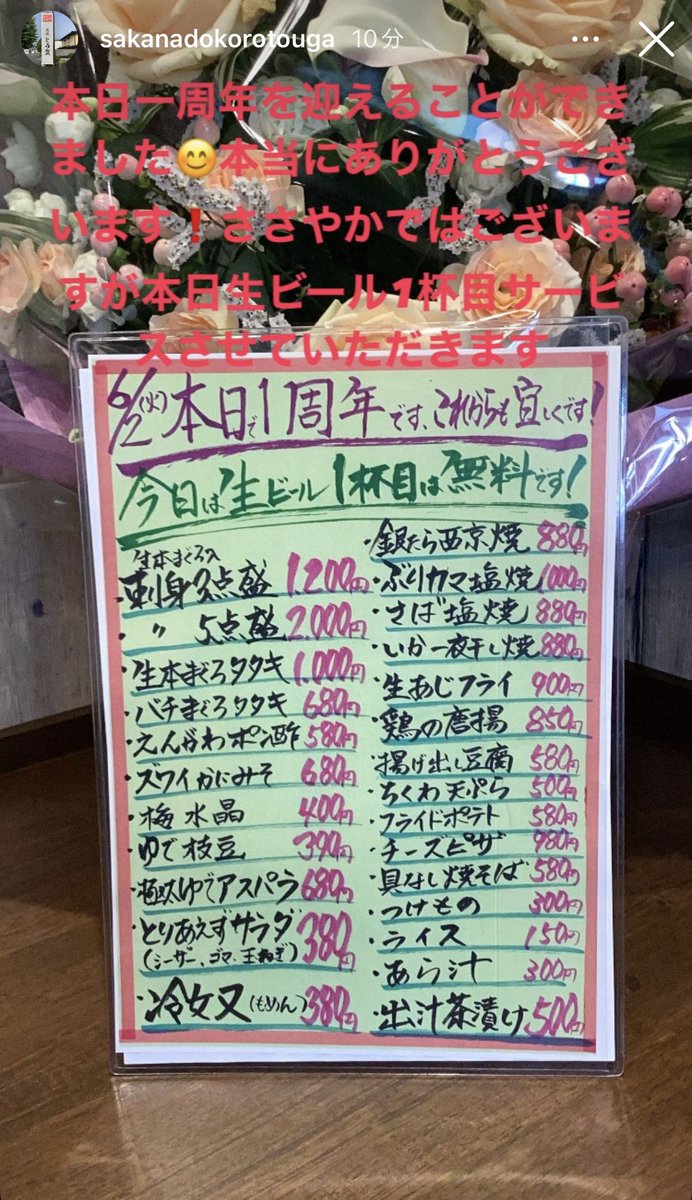 sakanadokorotouga 10分
本日一周年を迎えることができ
ました😊本当にありがとうござ
います！ささやかではございま
すが本日生ビール1杯目サービ
スさせていただきます
6/2(火)本日で1周年です、これからも宜しくです!
今日は生ビール1杯目は無料です!
生本まぐろ入
・刺身3点盛 1.200円
・〃 5点盛 2.000円
・生本まぐろタタキ 1.000円
・バチまぐろタタキ 680円
・えんがわポン酢 580円
・ズワイかにみそ 680円
・梅水晶 400円
・ゆで枝豆 390円
・極太ゆでアスパラ 680円
・とりあえずサラダ 380円
(シーザー、ゴマ、玉ねぎ)
・冷奴(もめん) 380円
・銀だら西京焼 880円
・ぶりカマ塩焼 1000円
・さば塩焼 880円
・いか一夜干し焼 880円
・生あじフライ 900円
・鶏の唐揚 850円
・揚げ出し豆腐 580円
・ちくわ天ぷら 500円
・フライドポテト 580円
・チーズピザ 980円
・具なし焼そば 580円
・つけもの 300円
・ライス 150円
・あら汁 300円
・出汁茶漬け 500円